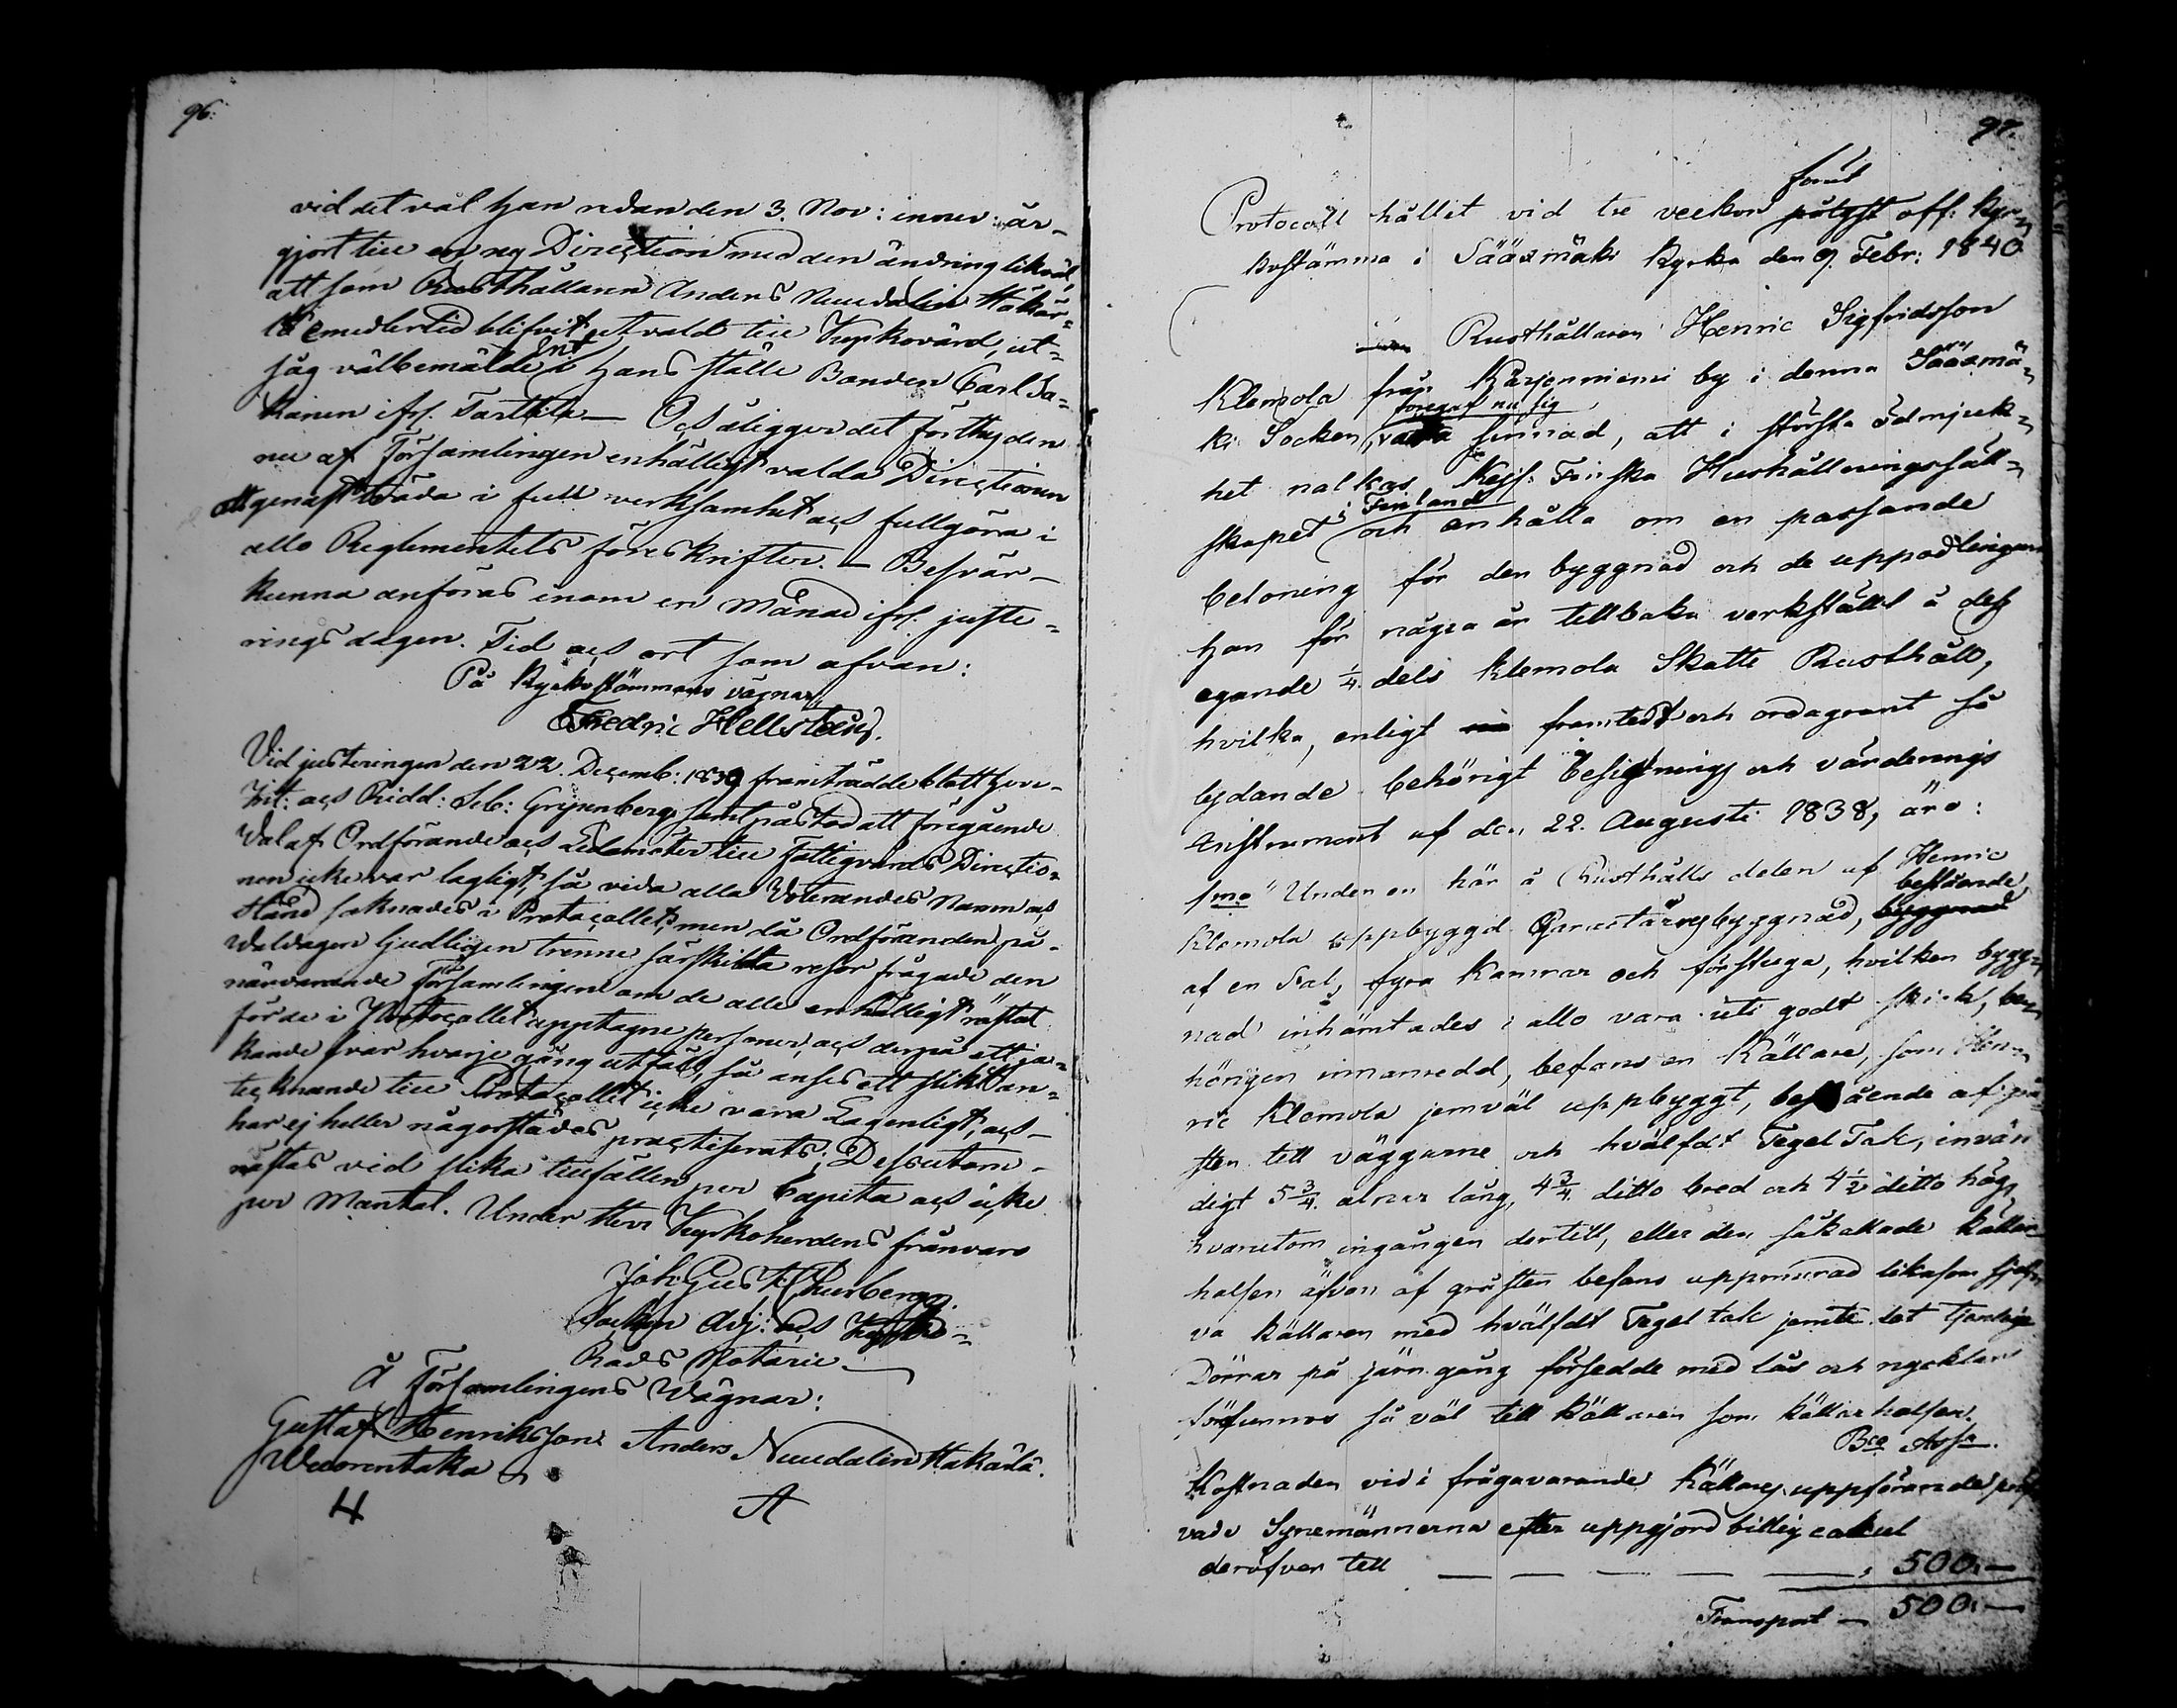 96.
vid det val han redan den 3. Nov: innev: år
gjort till en ny Direction med den ändring likväl,
att som Rusthållaren Anders Nuudalin Hakar=
lä emedlertid blifvit utvald till Kyrkovärd, ut=
såg välbemälde Hr i hans ställe Bonden Carl Sa=
karien ifr. Tarttila — Och åligger det förthy den
nu af Församlingen enhälligt valda Direction
att genast träda i full verksamhet och fullgöra i
allo Reglementets föreskrifter. — Besvär
kunna anföras inom en Månad ifr. juste=
ringsdagen. Tid och ort som ofvan:
På Kyrkostämmans vägnar
Fredric Hellsten.
Vid justeringen den 22. Decemb: 1839 framträdde
och Ridd: Seb: Gripenberg samt påstod att föregående
Val af Ordförande och Ledamöter till Fattigvårds Directio=
nen icke var lagligt, så vida alla Voterandes Namn och
saknades i Protocollet; men då Ordföranden på
Valdagen ljudligen trenne särskilda resor frågade den
närvarande Församlingen om de alle enhälligt röstat
för de i Protocollet upptagne personer, och derpå ett ja=
kande svar hvarje gång utföll, så anses ett slikt an=
tecknande till Protocollet icke vara Lagenligt, och
har ej heller någorstädes practiserats; Dessutom
röstas vid slika tillfällen per Capita och icke
per Mantal. Under Herr Kyrkoherdens frånvaro
Joh: Gust: Thurberg.
Socken Adj: och Kyrko=
Råds Notarie
Å Församlingens Vägnar:
Gustaf Henriksson Anders Nuudalin Hakarlä.
Wuorentaka
97.
förut
Protocoll hållet vid tre veckor pålyst off: Kyr=
kostämma i Sääxmäki Kyrka den 9. Febr: 1840
Rusthållaren Henric Sigfridsson
Klemola från Karjenniemi by i denna Sääxmä=
föregaf nu sig
ki Socken, vara sinnad, att i största ödmjuk=
het nalkas Kejs: Finska Hushållningssäll=
i Finland
skapet och anhålla om en passande
beloning för den byggnad och de uppodlingar
han för några år tillbaka verkställt å dess
egande ¼ dels Klemola Skatte Rusthåll,
hvilka, enligt framtedt och ordagrant så
lydande behörigt Besigtnings och värderings
Instrument af den 22. Augusti 1838, äro:
1mo "Under en här å Rusthålls delen af Henric
bestående
Klemola uppbyggd Caractärsbyggnad, byggnad
af en Sal, fyra Kamrar och förstuga, hvilken bygg=
nad inhämtades i allo vara uti godt skick, be=
hörigen innanredd, befans en Källare, som Hen=
ric Klemola jemväl uppbyggt, bestående af grå=
sten till väggarne och hvälfdt Tegel Tak, invän
digt 5 ¾ alnar lång, 4 ¾ ditto bred och 4 ½ ditto hög,
hvarutom ingången dertill, eller den såkallade källar
halsen äfven af gråsten befans uppmurad likasom sjelf=
va källaren med hvälfdt Tegel tak jemte det tjenlige
Dörrar på järn gång försedde med lås och nycklar
förefunnos så väl till källaren som källarhalsen.
Bco Assn.
Kostnaden vid i frågavarande Källares uppförande pröf
vade Synemännerna efter uppgjord billig calcul
deröfver till — — — — — 500.—
Transport — 500.—